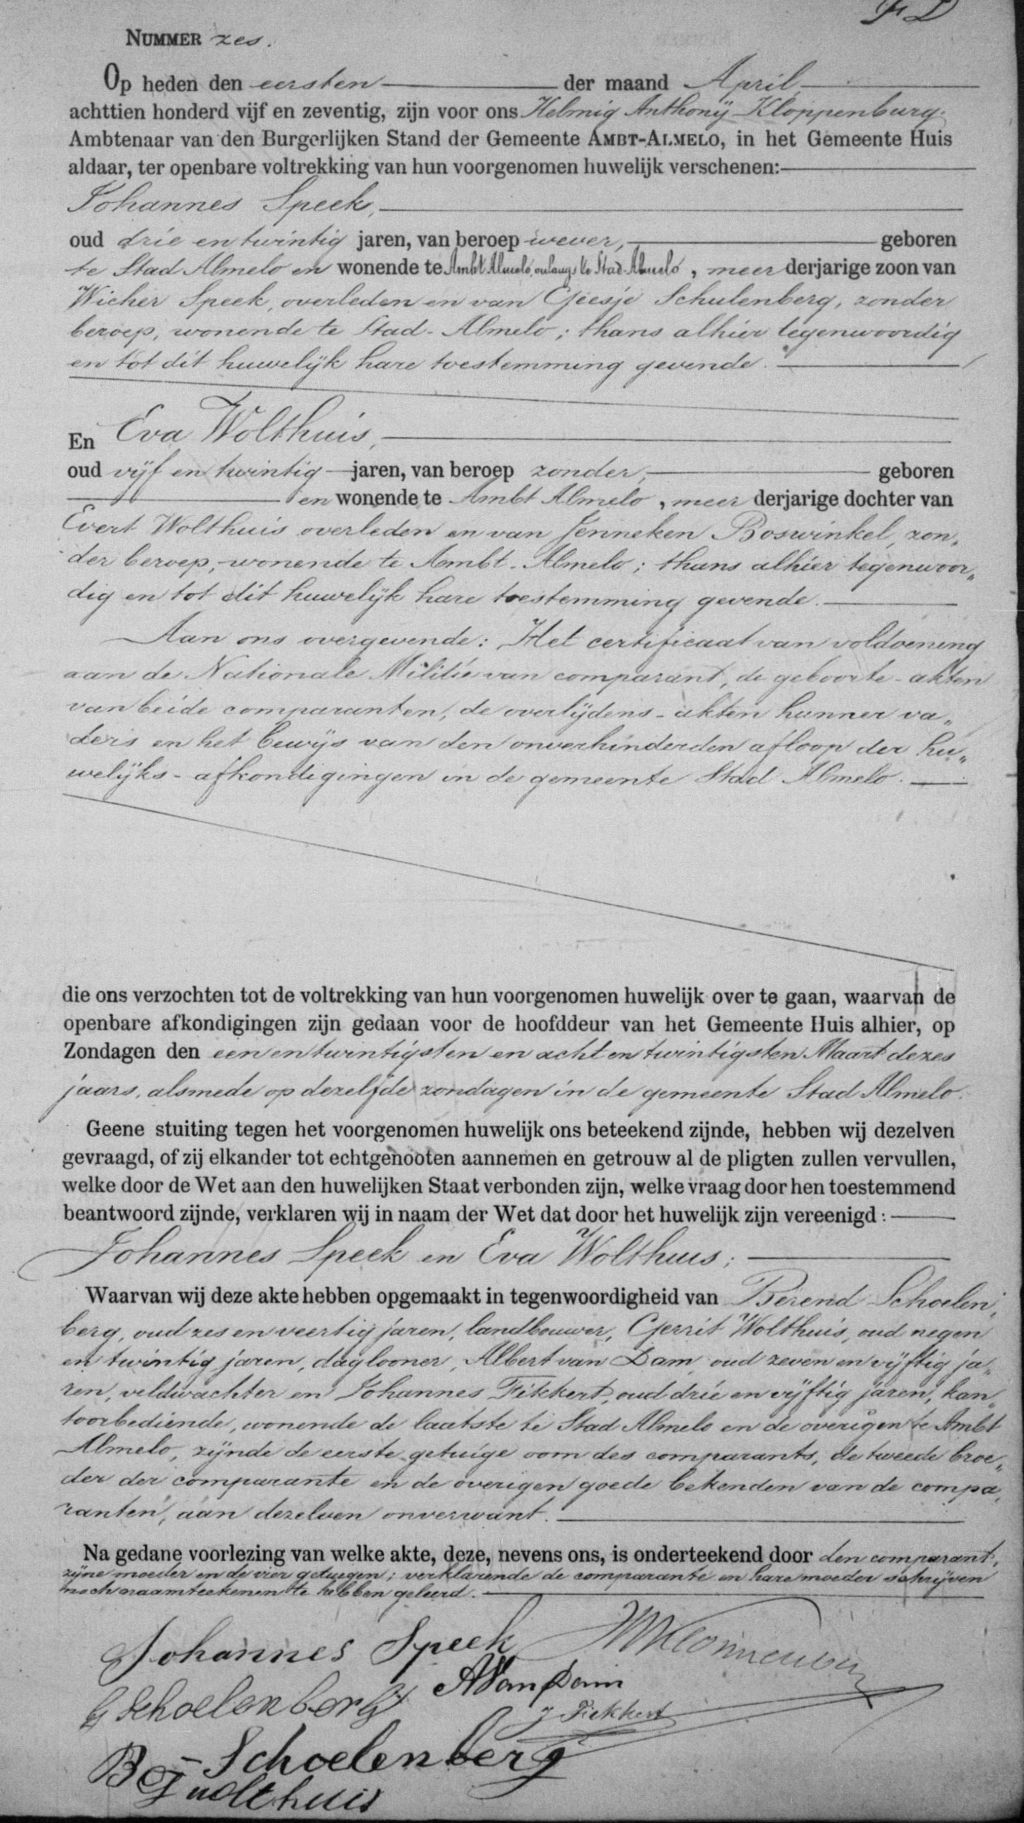 NUMMER zes.
Op heden den eersten der maand April
achttien honderd vijf en zeventig, zijn voor ons Helmig Anthonij Kloppenburg.
Ambtenaar van den Burgerlijken Stand der Gemeente AMBT-ALMELO, in het Gemeente Huis
aldaar, ter openbare voltrekking van hun voorgenomen huwelijk verschenen:
Johannes Speek,
oud drie en twintig jaren, van beroep wever, geboren
te Stad Almelo en wonende te Ambt Almelo, onlangs te Stad-Almelo, meer derjarige zoon van
Wicher Speek, overleden en van Geesje Schulenberg, zonder
beroep, wonende te Stad-Almelo; thans alhier tegenwoordig
en tot dit huwelijk hare toestemming gevende.
En Eva Wolthuis,
oud vijf en twintig jaren, van beroep zonder, geboren
en wonende te Ambt Almelo, meer derjarige dochter van
Evert Wolthuis overleden en van Jenneken Boswinkel, zon„
der beroep, wonende te Ambt-Almelo; thans alhier tegenwoor„
dig en tot dit huwelijk hare toestemming gevende.
Aan ons overgevende: Het certificaat van voldoening
aan de Nationale Militie van comparant, de geboorte-akten
van beide comparanten, de overlijdens-akten hunner va„
ders en het bewijs van den onverhinderden afloop der hu„
welijks-afkondigingen in de gemeente Stad Almelo.
die ons verzochten tot de voltrekking van hun voorgenomen huwelijk over te gaan, waarvan de
openbare afkondigingen zijn gedaan voor de hoofddeur van het Gemeente Huis alhier, op
Zondagen den een en twintigsten en acht en twintigsten Maart dezes
jaars, alsmede op dezelfde zondagen in de gemeente Stad Almelo.
Geene stuiting tegen het voorgenomen huwelijk ons beteekend zijnde, hebben wij dezelven
gevraagd, of zij elkander tot echtgenooten aannemen en getrouw al de pligten zullen vervullen,
welke door de Wet aan den huwelijken Staat verbonden zijn, welke vraag door hen toestemmend
beantwoord zijnde, verklaren wij in naam der Wet dat door het huwelijk zijn vereenigd:
Johannes Speek en Eva Wolthuis;
Waarvan wij deze akte hebben opgemaakt in tegenwoordigheid van Berend Schoelen„
berg, oud zes en veertig jaren, landbouwer, Gerrit Wolthuis, oud negen
en twintig jaren, daglooner, Albert van Dam, oud zeven en vijftig ja„
ren, veldwachter en Johannes Fikkert, oud drie en vijftig jaren, kan„
toorbediende, wonende de laatste te Stad Almelo en de overigen te Ambt
Almelo, zijnde de eerste getuige oom des comparants, de tweede broe„
der der comparante en de overigen goede bekenden van de compa„
ranten, aan dezelven onverwant.
Na gedane voorlezing van welke akte, deze, nevens ons, is onderteekend door den comparant,
zijne moeder en de vier getuigen; verklarende de comparante en hare moeder schrijven
noch naamteekenen te hebben geleerd.
Johannes Speek
G Schoelenberg
A Van Dam
J. Fikkert
B Schoelenberg
G wolthuis